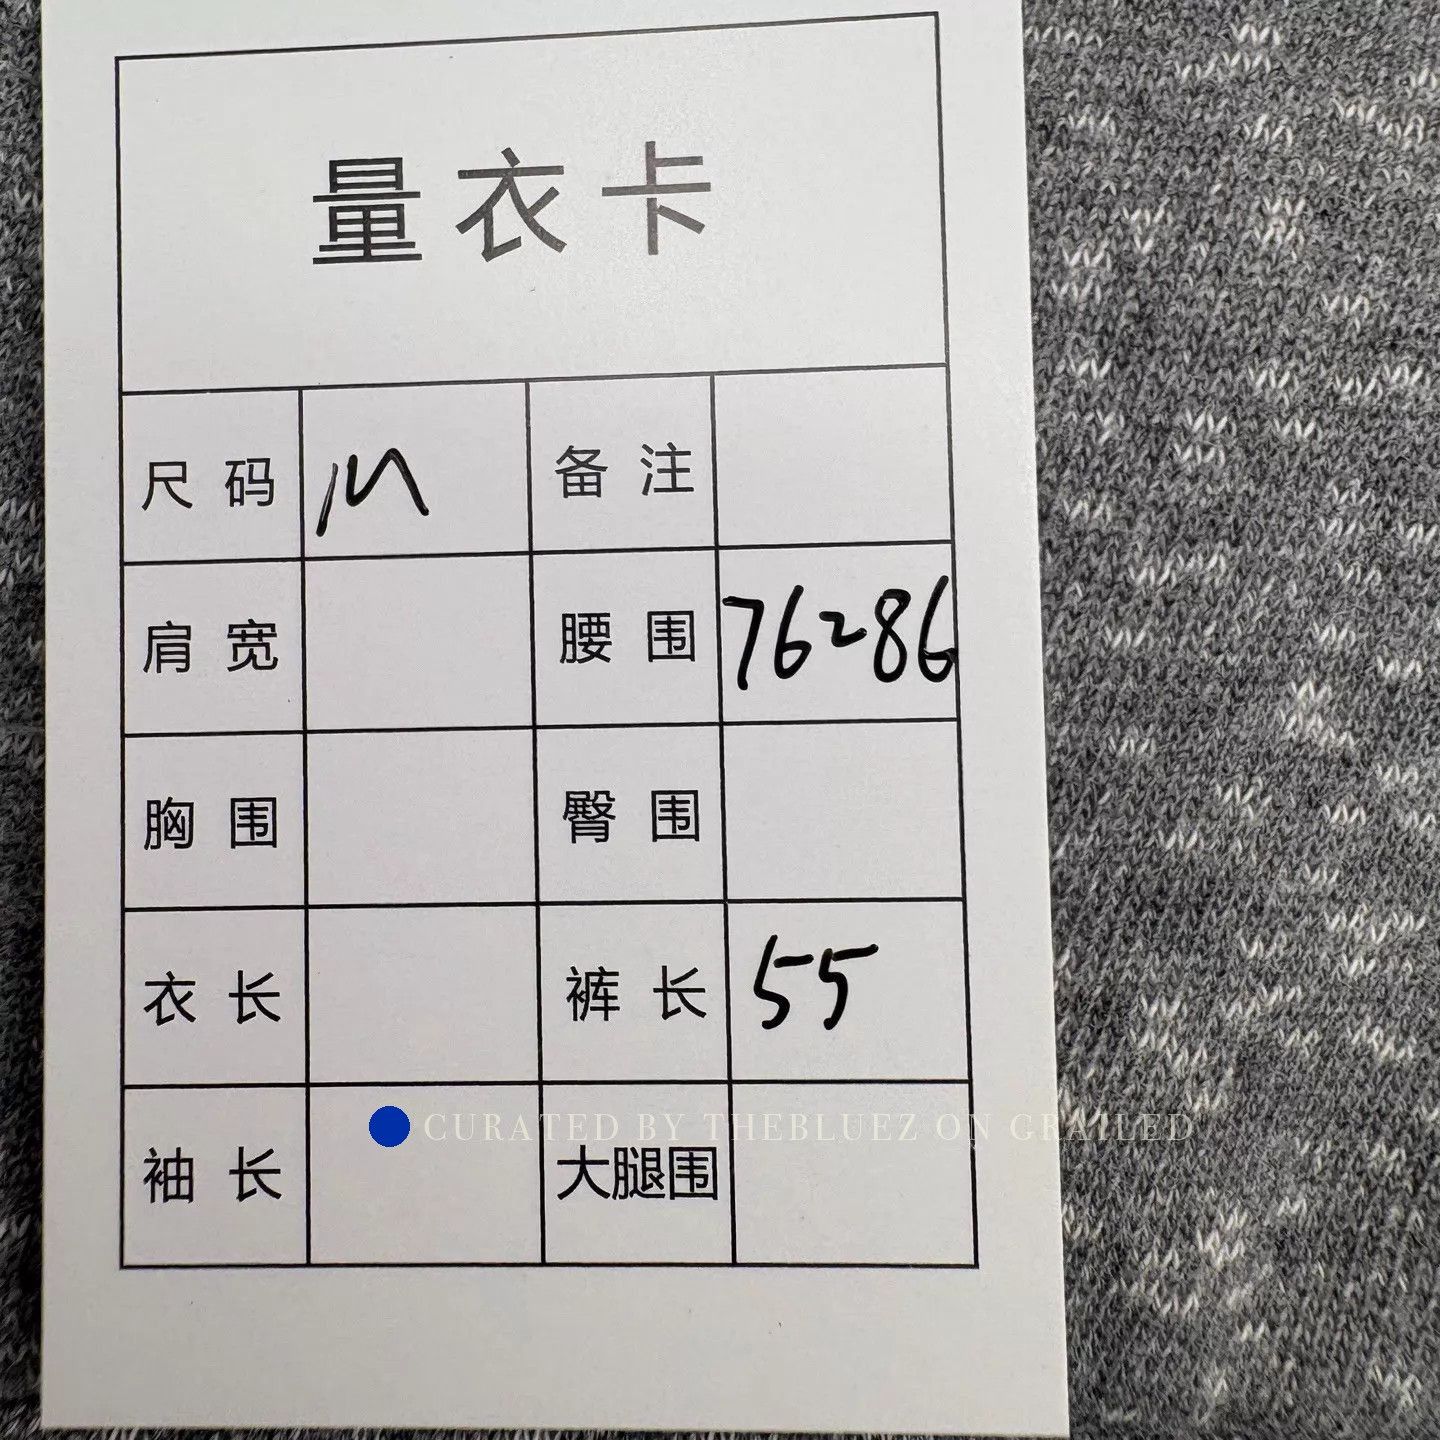 量衣卡
尺码 M 备注
肩宽 腰围 76-86
胸围 臀围
衣长 裤长 55
袖长 大腿围
CURATED BY THEBLUEZ ON GRAILED